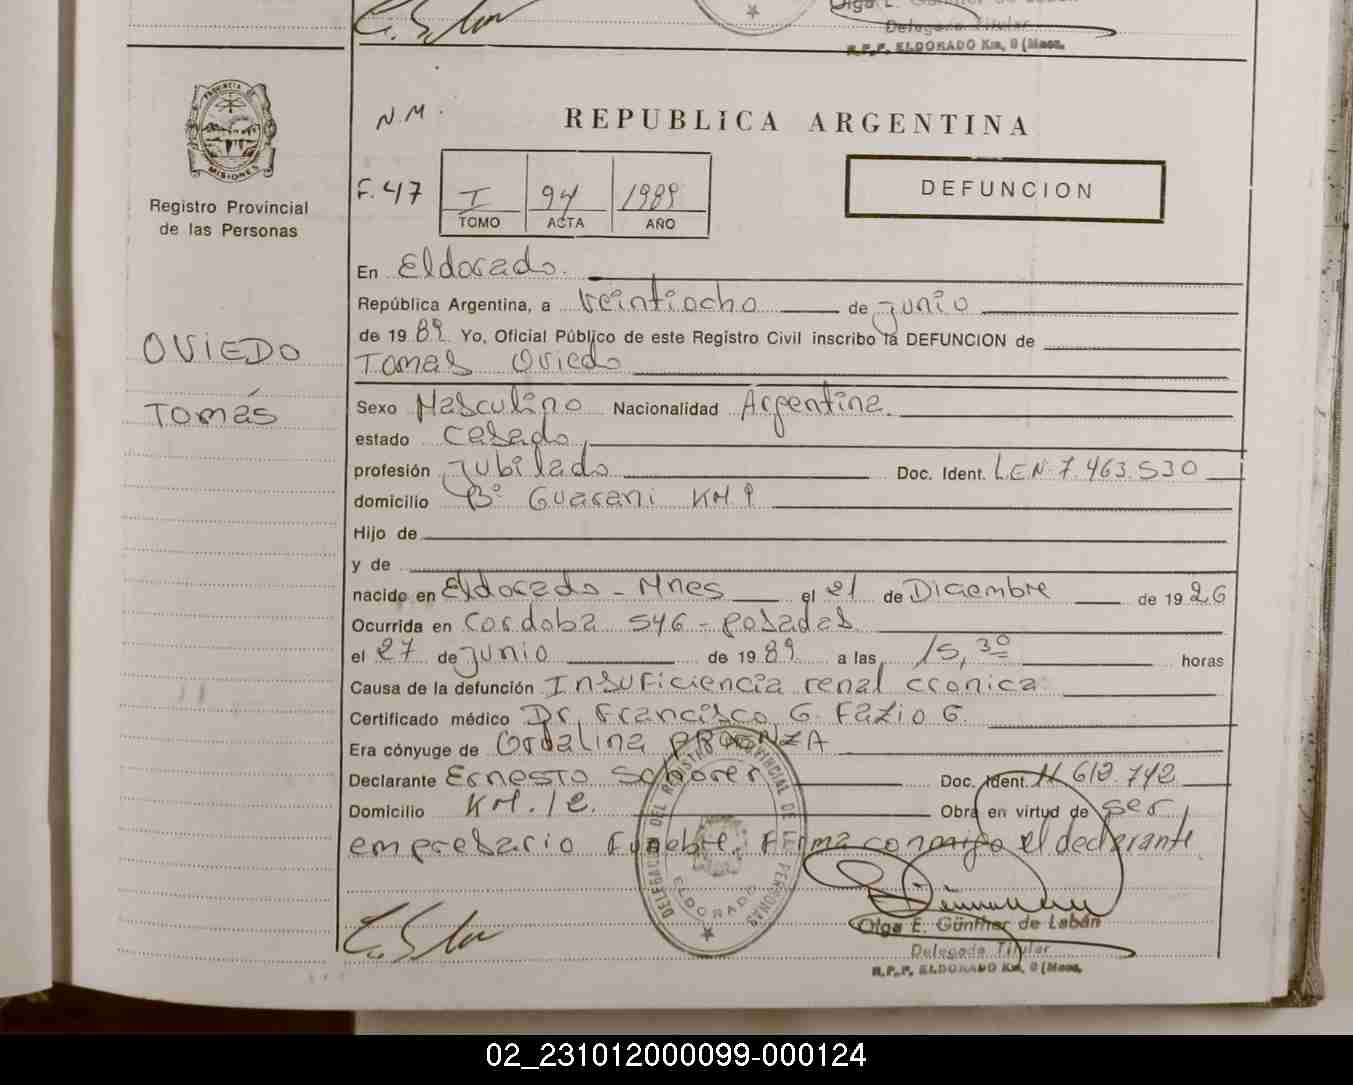 Olga E. Günther de Labán
Delegada Titular
R.P.P. ELDORADO Km. 9 (Mnes.
PROVINCIA DE
MISIONES
Registro Provincial
de las Personas
OVIEDO
Tomás
N.M.
REPUBLICA ARGENTINA
F.47 I 94 1989
TOMO ACTA AÑO
DEFUNCION
En Eldorado.
República Argentina, a veintiocho de junio
de 19 89 Yo, Oficial Público de este Registro Civil inscribo la DEFUNCION de
Tomas Oviedo
Sexo Masculino Nacionalidad Argentina.
estado Casado,
profesión Jubilado Doc. Ident. L.E.Nº 7.463.530
domicilio Bº Guarani KM 9
Hijo de
y de
nacido en Eldorado - Mnes el 21 de Diciembre de 19 26
Ocurrida en Cordoba 546 - Posadas
el 27 de junio de 19 89 a las 15,30 horas
Causa de la defunción Insuficiencia renal cronica
Certificado médico Dr. Francisco G. Fazio G.
Era cónyuge de Cordalina
Declarante Ernesto Doc. Ident. 612.742
Domicilio KM. 12.
Obra en virtud de ser
empresario Funebre. Firma conmigo el declarante
DELEGACION DEL REGISTRO PROVINCIAL DE LAS PERSONAS
ELDORADO
Olga E. Günther de Labán
Delegada Titular
R.P.P. ELDORADO Km. 9 (Mnes.
02_231012000099-000124